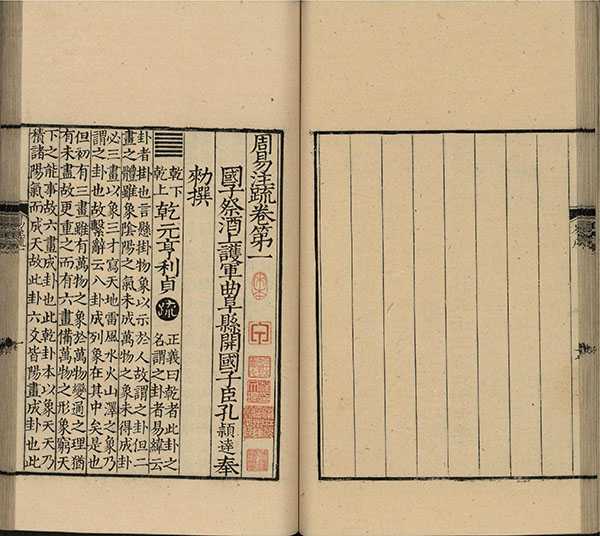 周易注疏卷第一
國子祭酒上護軍曲阜縣開國子臣孔穎達奉
勅撰
䷀ 乾下乾上 乾元亨利貞 疏 正義曰乾者此卦之
名謂之卦者易緯云
卦者掛也言懸掛物象以示於人故謂之卦但二
畫之體雖象陰陽之氣未成萬物之象未得成卦
必三畫以象三才寫天地雷風水火山澤之象乃
謂之卦也故繫辭云八卦成列象在其中矣是也
但初有三畫雖有萬物之象於萬物變通之理猶
有未盡故更重之而有六畫備萬物之形象窮天
下之能事故六畫成卦也此乾卦本以象天天乃
積諸陽氣而成天故此卦六爻皆陽畫成卦也此